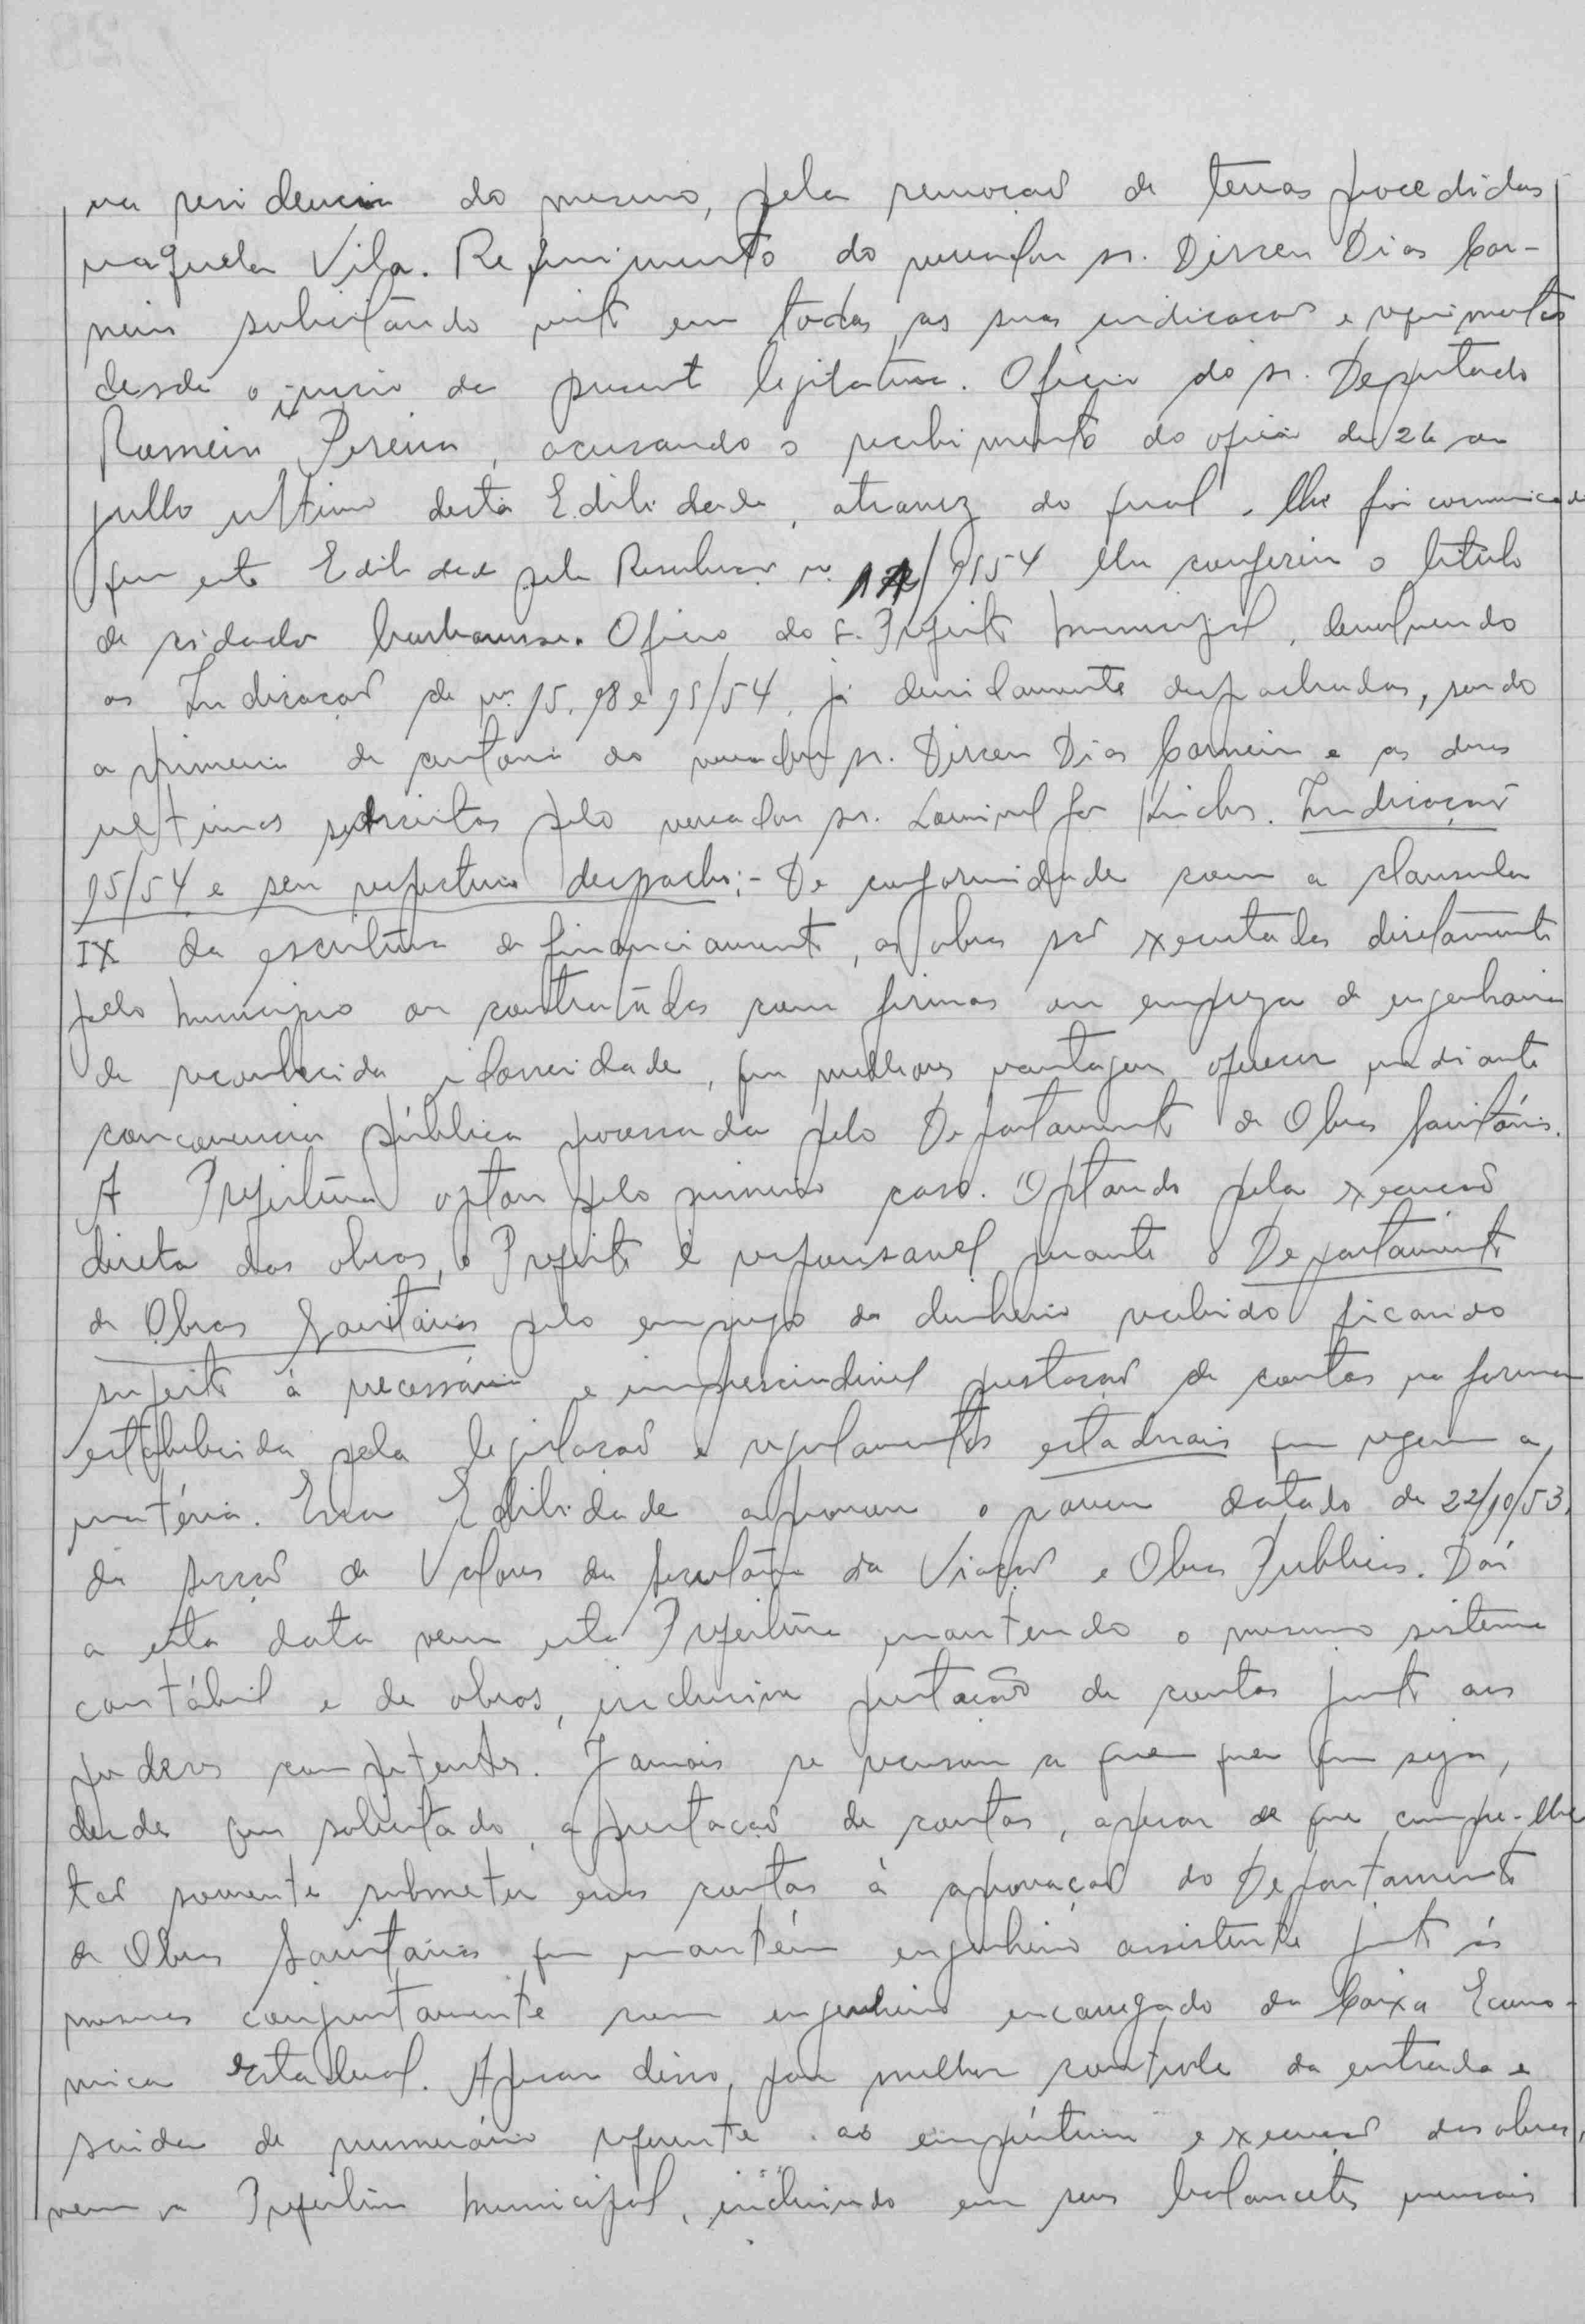 na residencia do mesmo, pela remoção de terras procedidas
naquela Vila. Requerimento do vereador sr. Dirceu Dias Car-
neiro solicitando visto em todas as suas indicações e requerimentos
desde o inicio da presente legislatura. Oficio do sr. Deputado
Romeiro Pereira, acusando o recebimento do oficio de 26 de
julho ultimo desta Edilidade, atravez do qual, lhe foi comunicado
que esta Edilidade pela Resolução nº /54 lhe conferiu o titulo
de cidadão barbarense. Oficio do sr. Prefeito Municipal, devolvendo
as Indicações de nºs. 95, 98 e 99/54, já devidamente despachadas, sendo
a primeira de autoria do vereador sr. Dirceu Dias Carneiro e as duas
ultimas subscritas pelo vereador sr. Indicação
95/54 e seu respectivo despacho:- De conformidade com a clausula
IX da escritura de financiamento, as obras são executadas diretamente
pelo Municipio ou contratadas com firmas ou empreza de engenharia
de reconhecida idoneidade, que melhores vantagens oferecer mediante
concorrencia pública processada pelo Departamento de Obras Sanitárias.
A Prefeitura optou pelo primeiro caso. Optando pela execução
direta das obras, o Prefeito é responsavel perante o Departamento
de Obras Sanitárias pelo emprego do dinheiro recebido ficando
sujeito à necessária e imprescindivel prestação de contas na forma
estabelecida pela legislação e regulamentos estaduais que regem a
matéria. Essa Edilidade aprovou o parecer datado de 22/10/53,
da secção de Valores da Secretaria da Viação e Obras Publicas. Daí
a esta data vem esta Prefeitura mantendo o mesmo sistema
contábil e de obras, inclusive prestação de contas junto aos
poderes competentes. Jamais se recusou a quem quer que seja,
desde que solicitado, a prestação de contas, apesar de que cumpre-lhe
tão somente submeter essas contas à aprovação do Departamento
de Obras Sanitárias que mantém engenheiro assistente junto às
mesmas conjuntamente com engenheiro encarregado da Caixa Econo-
mica Estadual. Apesar disso, para melhor controle da entrada e
saida de numerário referente ao empréstimo e execução das obras,
vem a Prefeitura Municipal, incluindo em seus balancetes mensais